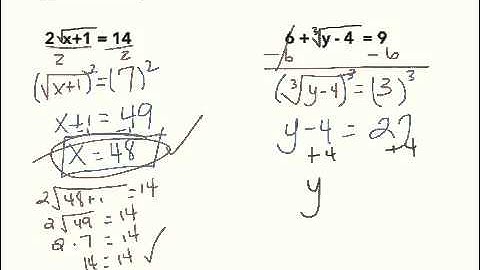 2√x+1 = 14
2 2
(√x+1)² = (7)²
x+1 = 49
x = 48
2√48+1 = 14
2√49 = 14
2 · 7 = 14
14 = 14 ✓
6 + ³√y-4 = 9
-6 -6
(³√y-4)³ = (3)³
y-4 = 27
+4 +4
y